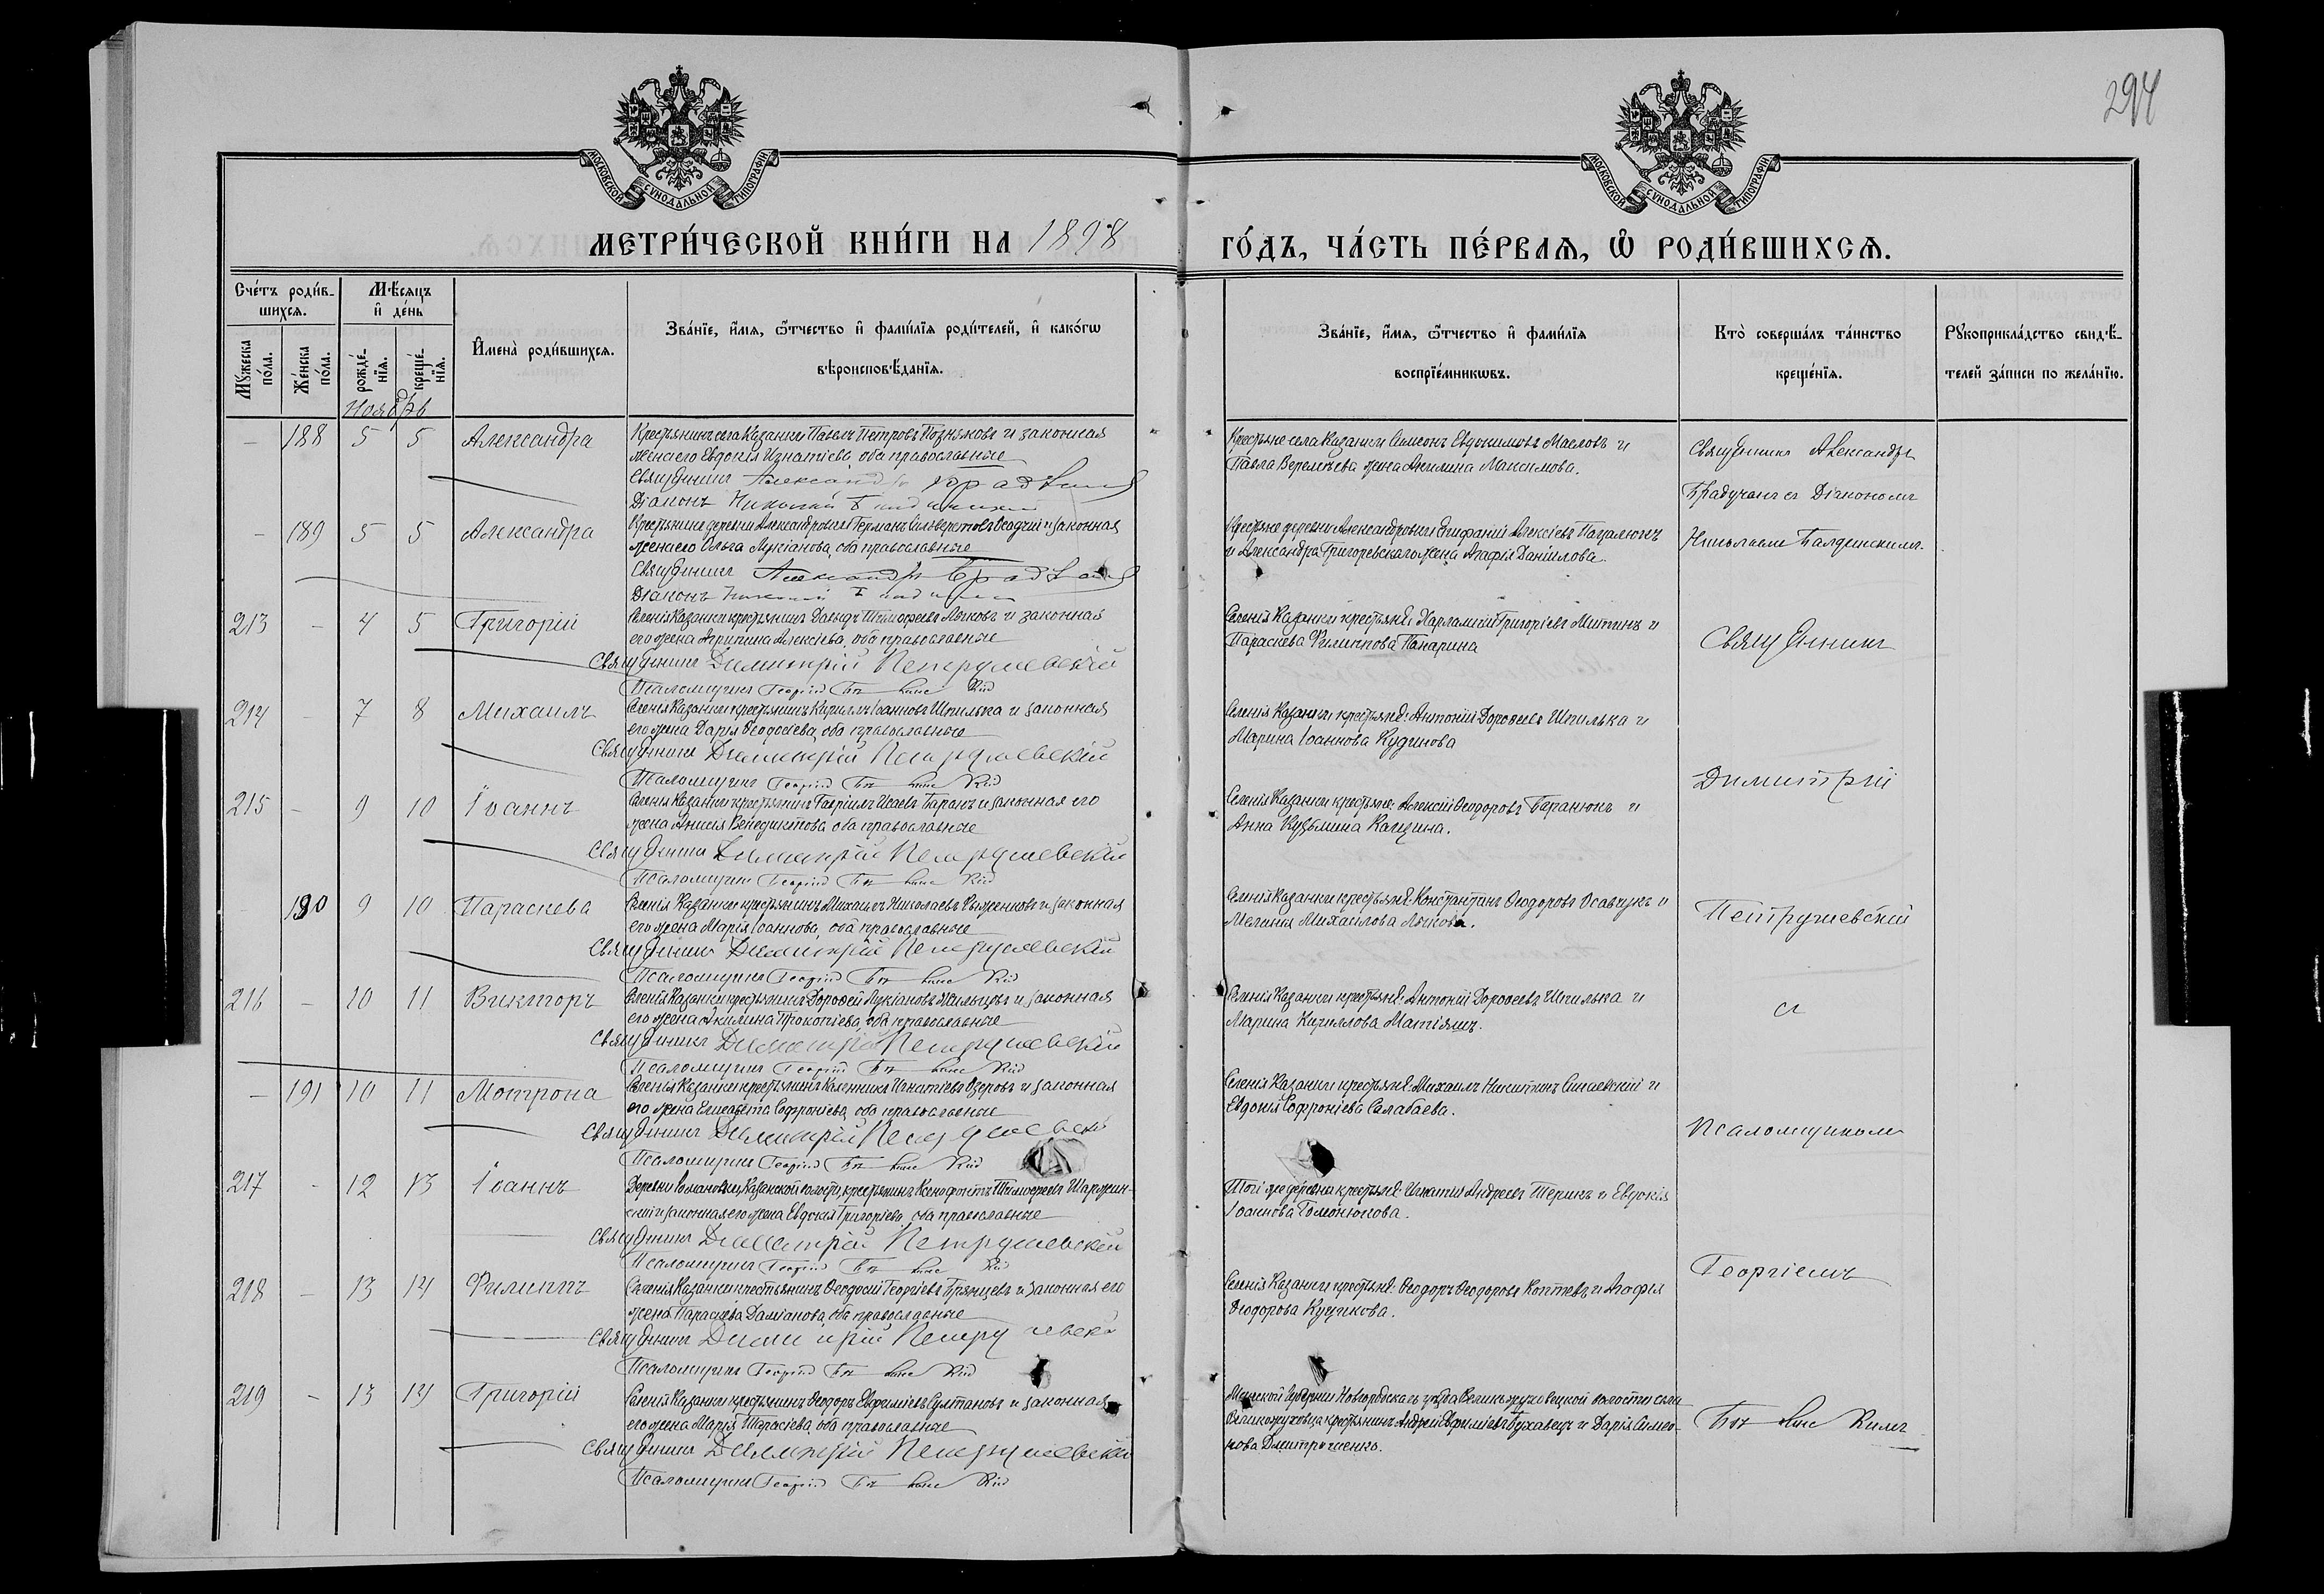 294
МОСКОВСКОЙ СѴНОДАЛЬНОЙ ТИПОГРАФІИ
МОСКОВСКОЙ СѴНОДАЛЬНОЙ ТИПОГРАФІИ
МЕТРИ́ЧЕСКОЙ КНИ́ГИ НА 1898
ГО́ДЪ, ЧА́СТЬ ПЕ́РВАѦ, Ѡ҆ РОДИ́ВШИХСѦ.
Сче́тъ роди́в-
шихсѧ.
Му́жеска по́ла.
Же́нска по́ла.
Мѣ́сѧцъ
и҆ де́нь
рожде́-
нїѧ.
креще́-
нїѧ.
И҆мена̀ роди́вшихсѧ.
Зва́нїе, и҆́мѧ, ѻ҆́тчество и҆ фами́лїѧ роди́телей, и҆ како́гѡ
вѣроисповѣ́данїѧ.
Зва́нїе, и҆́мѧ, ѻ҆́тчество и҆ фами́лїѧ
воспрїе́мникѡвъ.
Кто̀ соверша́лъ та́инство
креще́нїѧ.
Рꙋкоприкла́дство свидѣ́-
телей за́писи по жела́нїю.
Ноябрь
- 188 5 5 Александра
Крестьянинъ села Казанки Павелъ Петровъ Позняковъ и законная
жена его Евдокія Игнатіева, оба православные
Священникъ Александръ
Діаконъ Николай
Крестьяне села Казанки Симеонъ Евдокимовъ Масловъ и
Павла Веремѣева жена Акилина Максимова.
Священникъ Александръ
Брадучанъ съ Діакономъ
- 189 5 5 Александра
Крестьянинъ деревни Александровки Германъ Сильвестровъ Осадчій и законная
жена его Ольга Лукіанова, оба православные
Священникъ Александръ
Діаконъ Николай
Крестьяне деревни Александровки Епифаній Алексіевъ и
и Александра Григоревскаго жена Агафія Даніилова.
Николаемъ Балдинскимъ.
213 - 4 5 Григорій
Селенія Казанки крестьянинъ Давидъ Тимофеевъ Лысовъ и законная
его жена Агрипина Алексіева, оба православные
Священникъ Димитрій Петрушевскій
Псаломщикъ Георгій
Селенія Казанки крестьяне: Харлампій Григоріевъ Митинъ и
Параскева Филиппова Панарина
Священникъ
214 - 7 8 Михаилъ
Селенія Казанки крестьянинъ Кириллъ Іоанновъ Шпилька и законная
его жена Дарія Ѳеодосіева, оба православные
Священникъ Димитрій Петрушевскій
Псаломщикъ Георгій
Селенія Казанки крестьяне: Антоній Дороѳеевъ Шпилька и
Марина Іоаннова Кудинова
Димитрій
215 - 9 10 Іоаннъ
Селенія Казанки крестьянинъ Гавріилъ Исаевъ Баранъ и законная его
жена Анисія Венедиктова, оба православные
Священникъ Димитрій Петрушевскій
Псаломщикъ Георгій
Селенія Казанки крестьяне: Алексій Ѳеодоровъ Баранюкъ и
Анна Кузьмина Кащина.
190 9 10 Параскева
Селенія Казанки крестьянинъ Михаилъ Николаевъ и законная
его жена Марія Іоаннова, оба православные
Священникъ Димитрій Петрушевскій
Псаломщикъ Георгій
Селенія Казанки крестьяне: Константинъ Ѳеодоровъ Осавчукъ и
Меланія Михаилова Лысова.
Петрушевскій
216 - 10 11 Викторъ
Селенія Казанки крестьянинъ Дороѳей Лукіановъ Жильцовъ и законная
его жена Акилина Прокопіева, оба православные
Священникъ Димитрій Петрушевскій
Псаломщикъ Георгій
Селенія Казанки крестьяне: Антоній Дороѳеевъ Шпилька и
Марина Кириллова Матіяшъ.
съ
- 191 10 11 Мотрона
Селенія Казанки крестьянинъ Каленникъ Игнатіевъ Озеровъ и законная
его жена Елисавета Софроніева, оба православные
Священникъ Димитрій
Псаломщикъ Георгій
Селенія Казанки крестьяне: Михаилъ Никитинъ Синаевскій и
Евдокія Софроніева Салабаева.
Псаломщикомъ
217 - 12 13 Іоаннъ
Деревни Романовки, Казанской волости, крестьянинъ Ксенофонтъ Тимоѳеевъ Шаржин-
скій и законная его жена Евдокія Григоріева, оба православные
Священникъ Димитрій Петрушевскій
Псаломщикъ Георгій
Той же деревни крестьяне: Игнатій Андреевъ Терикъ и Евдокія
Іоаннова Гомонюкова.
Георгіемъ
218 - 13 14 Филиппъ
Селенія Казанки крестьянинъ Ѳеодосій Георгіевъ Брянцевъ и законная его
жена Параскева Даміанова, оба православные
Священникъ Димитрій
Псаломщикъ Георгій
Селенія Казанки крестьяне: Ѳеодоръ Ѳеодоровъ Коптевъ и Агафія
Ѳеодорова Куликова.
219 - 13 14 Григорій
Селенія Казанки крестьянинъ Ѳеодоръ Евфиміевъ Султановъ и законная
его жена Марія Тарасіева, оба православные
Священникъ Димитрій Петрушевскій
Псаломщикъ Георгій
Минской губерніи Новгородскаго уѣзда Великожуховецкой волости села
Великожуховца крестьянинъ Андрей Евфиміевъ Бухавецъ и Дарія Симео-
нова Дмитриченко.